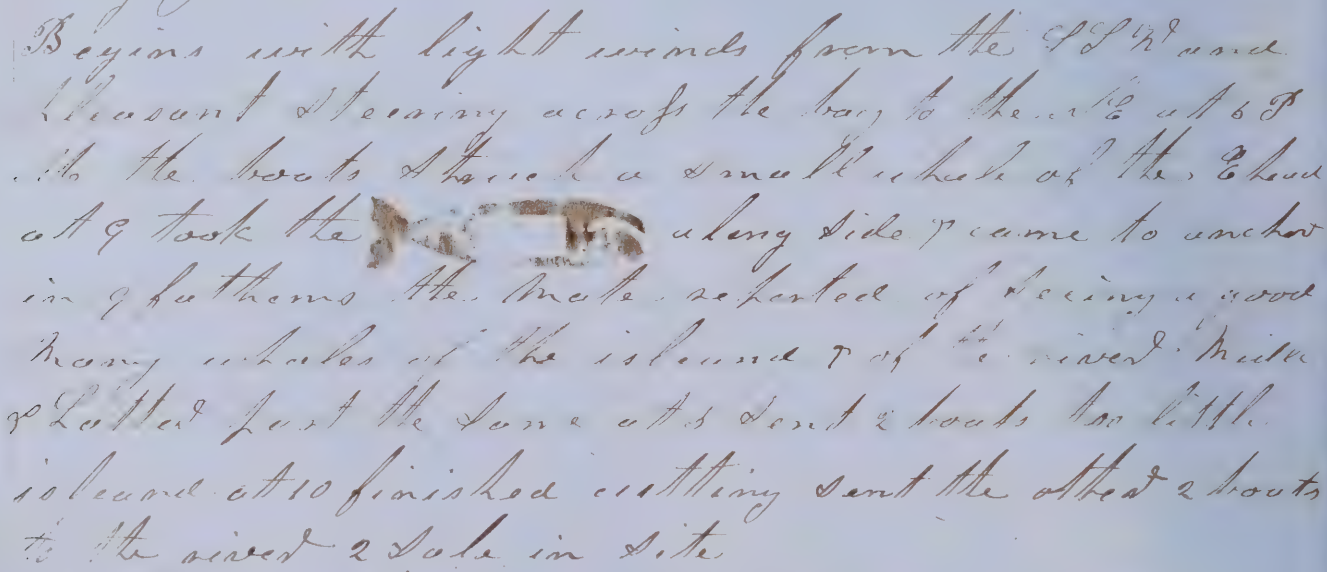 Begins with light winds from the SSW and
Pleasant Steering across the bay to the NE at 6 P
M the boats Struck a small whale of the E head
at 9 took the along side & came to anchor
in 9 fathoms the Mate reported of seeing a good
Many whales of the island & of the river Midle
& Latter part the Same at 5 Send 2 boats to little
island at 10 finished cutting sent the other 2 boats
to the river 2 Sale in Site